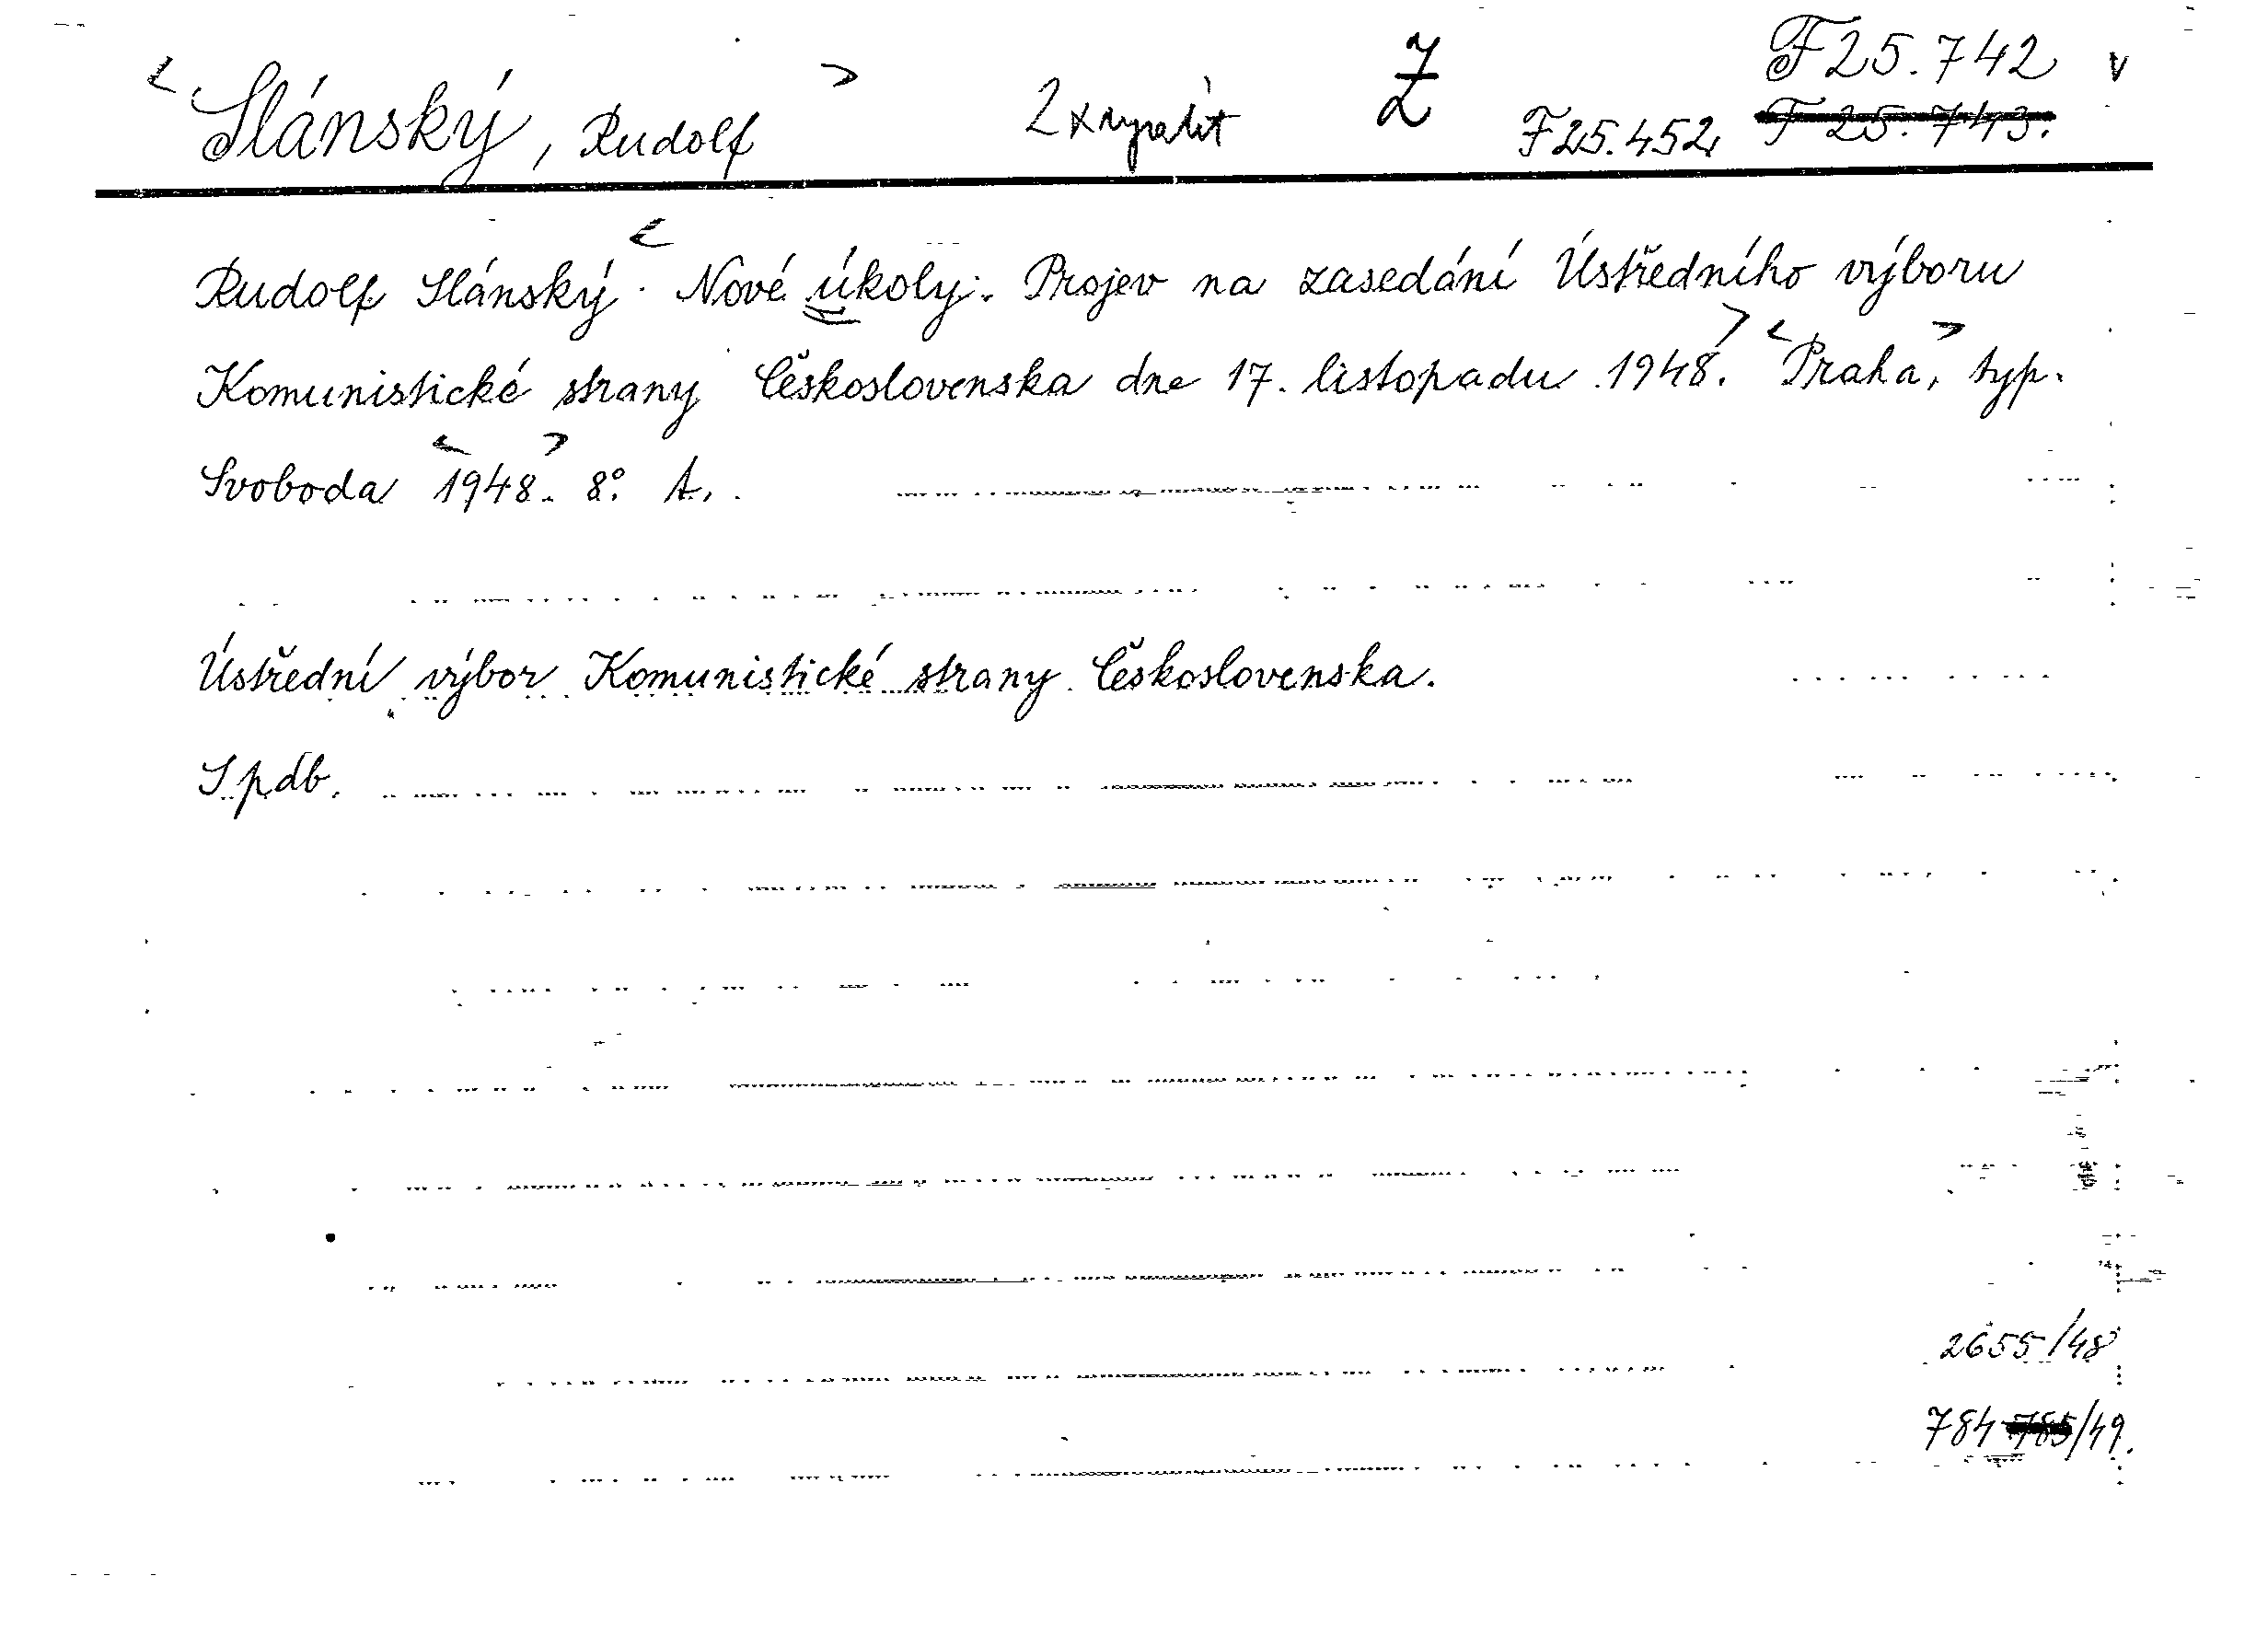 F 25.742 v
< Slánský, Rudolf > 2x vyřadit Ž F 25.452, F 25.743.
Rudolf Slánský. < Nové úkoly. Projev na zasedání Ústředního výboru
Komunistické strany Československa dne 17. listopadu 1948. > < Praha, > typ.
Svoboda < 1948. > 8°.
Ústřední výbor Komunistické strany Československa.
S pdb.
2655/48
784 785/49.